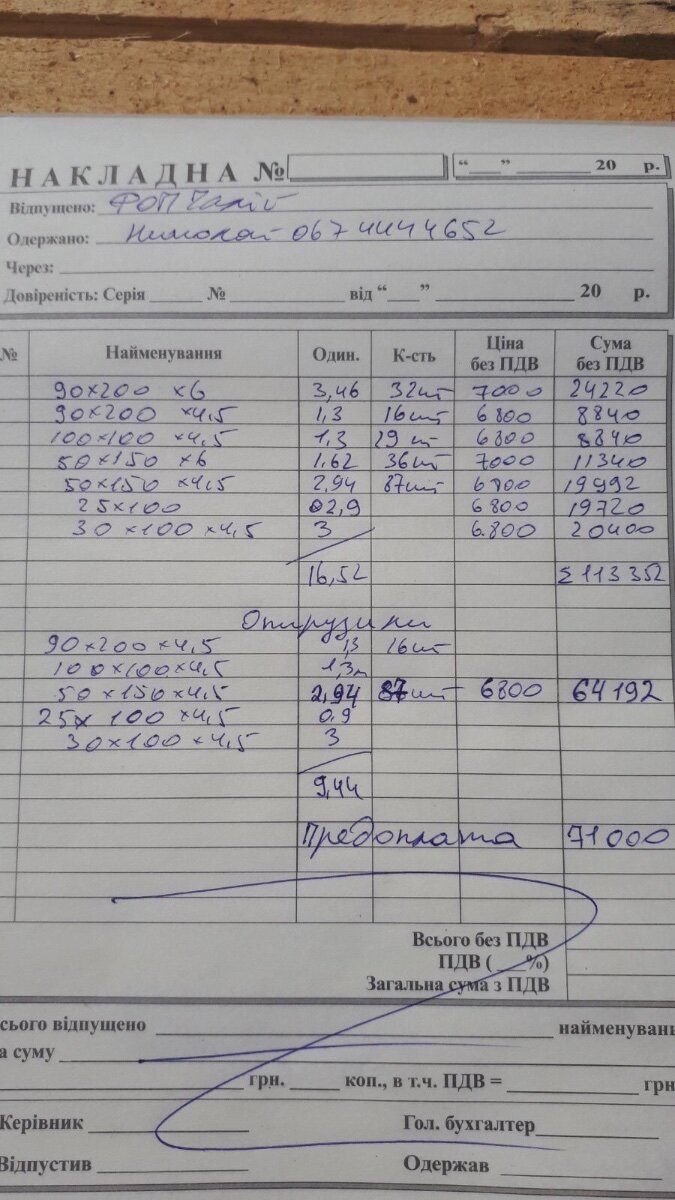 НАКЛАДНА № “___” ________ 20 р.
Відпущено: ФОП
Одержано: 067 4444652
Через:
Довіреність: Серія _____ № ________ від “___” ____________ 20 р.
№ Найменування Один. К-сть Ціна без ПДВ Сума без ПДВ
90×200 ×6 3,46 32шт 7000 24220
90×200 ×4,5 1,3 16шт 6800 8840
100×100 ×4,5 1,3 29 шт 6800 8840
50×150 ×6 1,62 36шт 7000 11340
50×150 ×4,5 2,94 87шт 6800 19992
25×100 2,9 6800 19720
30×100×4,5 3 6.800 20400
16,52 Σ113352
90×200×4,5 1,3 16шт
100×100×4,5 1,3
50×150×4,5 2,94 87шт 6800 64192
25×100×4,5 0,9
30×100×4,5 3
9,44
Предоплата 71000
Всього без ПДВ
ПДВ ( ___%)
Загальна сума з ПДВ
сього відпущено ________ найменувань
а суму
грн. _____ коп., в т.ч. ПДВ = ________ грн
Керівник ________ Гол. бухгалтер________
Відпустив ________ Одержав ________